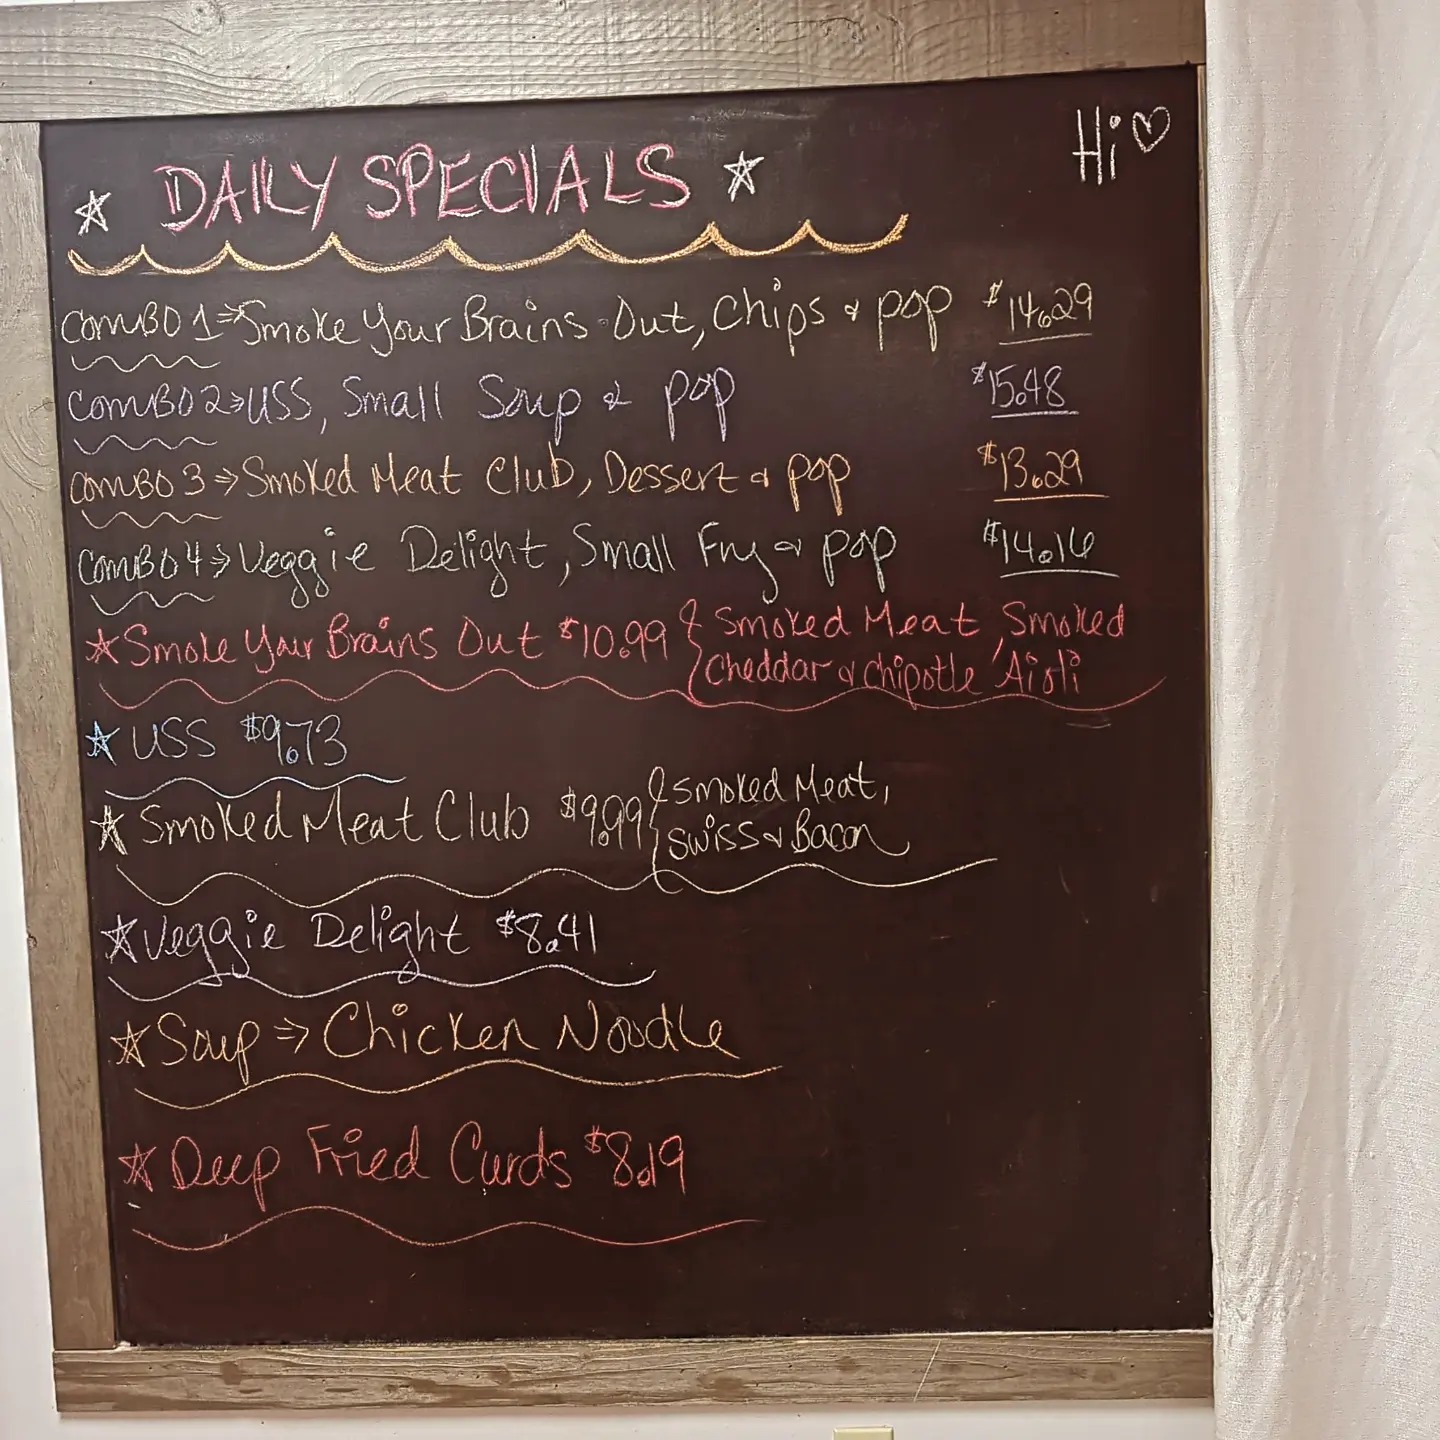 Hi♡
☆ DAILY SPECIALS ☆
COMBO 1⇒Smoke Your Brains Out, Chips & pop $14.29
COMBO 2⇒USS, Small Soup & pop $15.48
COMBO 3⇒Smoked Meat Club, Dessert & pop $13.29
COMBO 4⇒Veggie Delight, Small Fry & pop $14.16
☆Smoke Your Brains Out $10.99 { Smoked Meat, Smoked
Cheddar & Chipotle Aioli
☆ USS $9.73
☆ Smoked Meat Club $9.99 { Smoked Meat,
Swiss & Bacon
☆Veggie Delight $8.41
☆Soup ⇒ Chicken Noodle
☆Deep Fried Curds $8.19